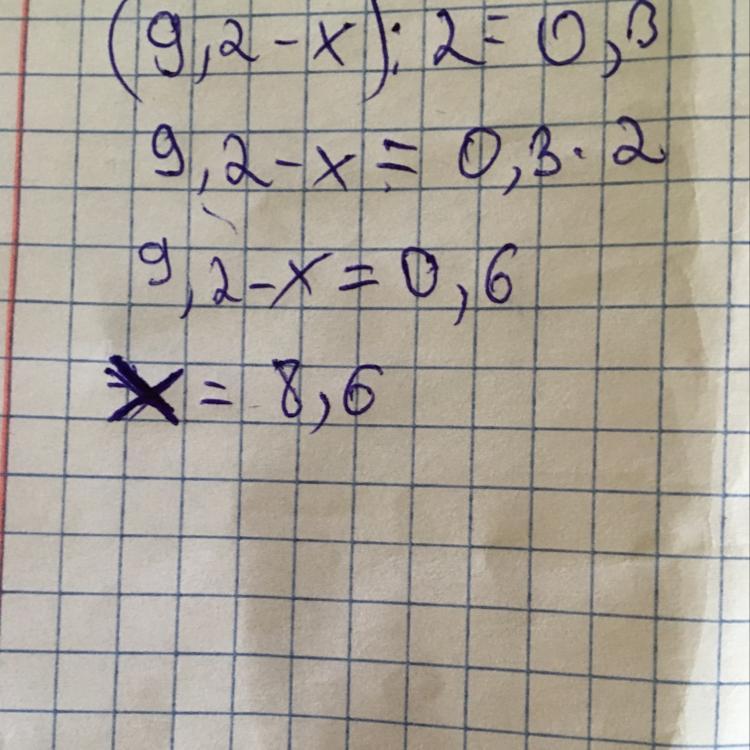 (9,2-x):2=0,3
9,2-x=0,3·2
9,2-x=0,6
x=8,6